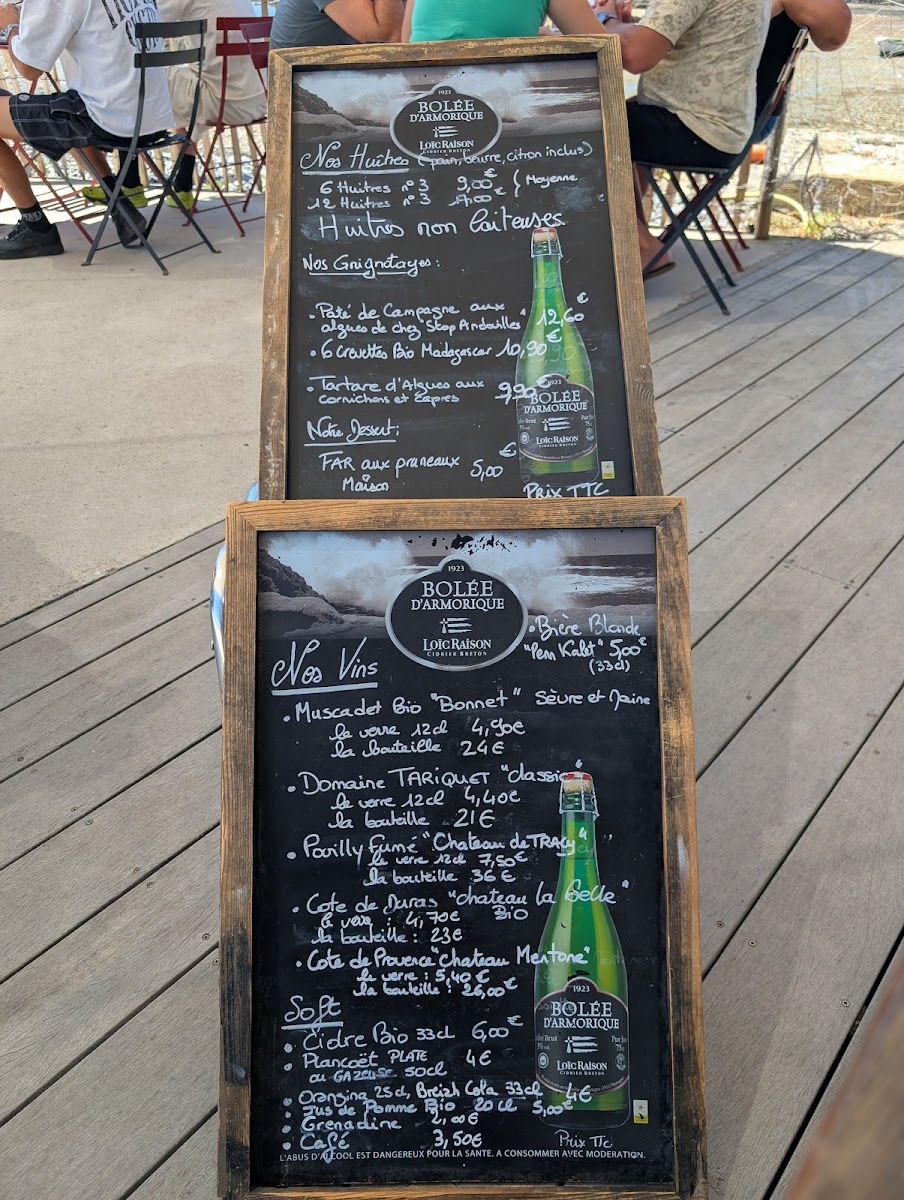 1923
BOLÉE
D'ARMORIQUE
LOÏC RAISON
CIDRIER BRETON
Nos Huîtres (pain, beurre, citron inclus)
6 Huitres n°3 9,00€ } Moyenne
12 Huitres n°3 17,00€
Huitres non laiteuses
Nos Grignotages:
• Paté de Campagne aux
algues de chez "Stop Andouilles" 12,60€
• 6 Crevettes Bio Madagascar 10,90€
• Tartare d'Algues aux
cornichons et capres 9,90€
Notre Dessert:
FAR aux pruneaux 5,00€
Maison
1923
BOLÉE
D'ARMORIQUE
LOÏC RAISON
Prix TTC
1923
BOLÉE
D'ARMORIQUE
LOÏC RAISON
CIDRIER BRETON
• Bière Blonde
"Penn Kalet" 5,00€
(33cl)
Nos Vins
• Muscadet Bio "Bonnet" Sèvre et Maine
le verre 12cl 4,90€
la bouteille 24€
• Domaine TARIQUET "classic"
le verre 12cl 4,40€
la bouteille 21€
• Pouilly Fumé "Chateau de TRACY"
le verre 12cl 7,50€
la bouteille 36€
• Cote de Duras "chateau La Selle"
Bio
le verre : 4,70€
la bouteille : 23€
• Cote de Provence "Chateau Mentone"
le verre : 5,40€
la bouteille : 26,00€
Soft
• Cidre Bio 33cl 6,00€
• Plancoët PLATE 4€
ou GAZEUSE 50cl
• Orangina 25cl, Breizh Cola 33cl 4€
• Jus de Pomme Bio 20cl 5,00€
• Grenadine 2,00€
• Café 3,50€
1923
BOLÉE
D'ARMORIQUE
LOÏC RAISON
CIDRIER BRETON
Prix TTC
L'ABUS D'ALCOOL EST DANGEREUX POUR LA SANTE. A CONSOMMER AVEC MODERATION.